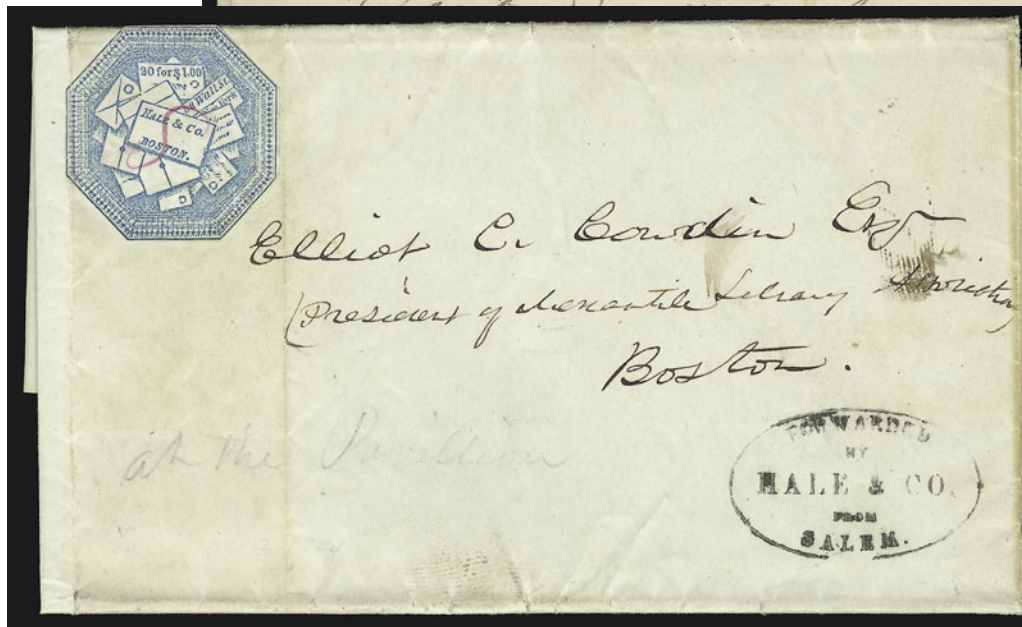 20 for $1.00
Wall St.
York
HALE & Co.
BOSTON.
Elliot C. Cowdin Esq
(President of Mercantile Library
Boston.
at the Pavillion
FORWARDED
BY
HALE & CO.
FROM
SALEM.